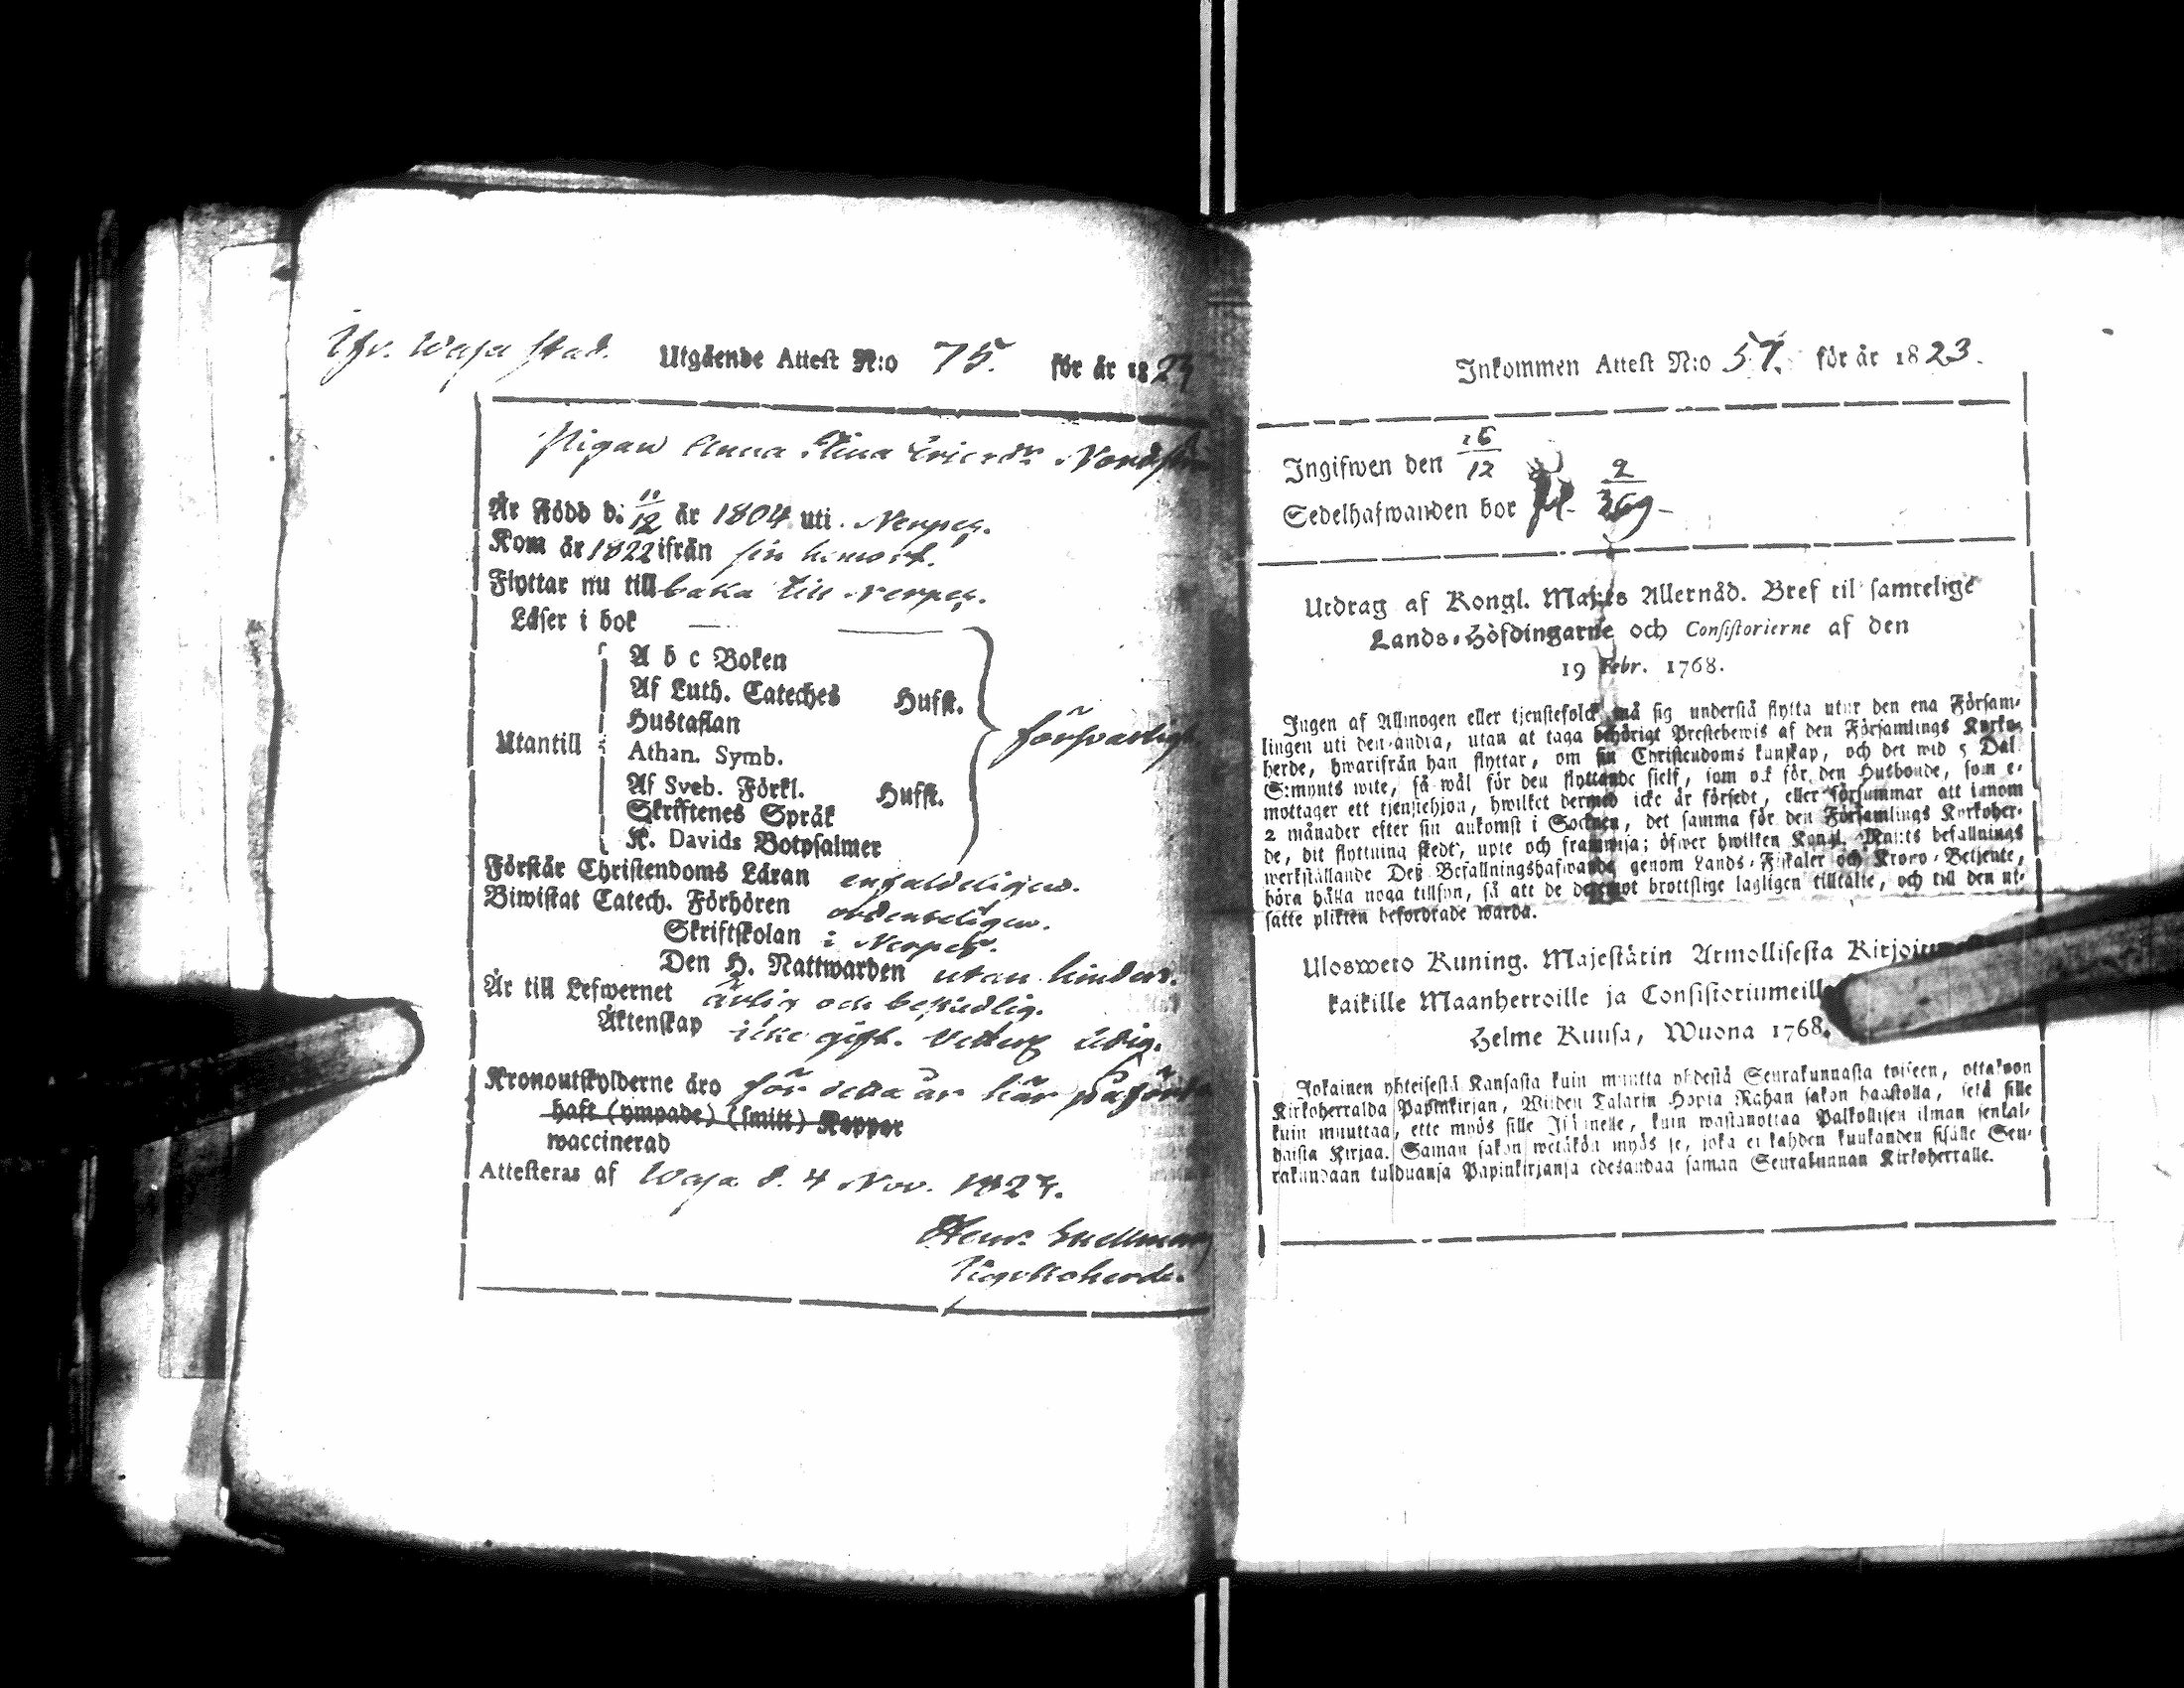 ifr. Wasa stad. Utgående Attest N:o 75. för år 1823
Pigan Anna Stina Ericsdr Nordström
År Född d. 11/12 år 1804 uti Nerpes.
Kom år 1822 ifrån sin hemort.
Flyttar nu till baka till Nerpes.
Läser i bok —
Utantill
A b c Boken
Af Luth. Cateches Husst.
Hustaflan
Athan. Symb.
Af Sveb. Förkl. Husst.
Skriftenes Språk
K. Davids Botpsalmer
försvarligt
Förstår Christendoms Läran enfaldeligen.
Biwistat Catech. Förhören ordenteligen.
Skriftskolan i Nerpes.
Den H. Nattwarden utan hinder.
Är till Lefwernet ärlig och beskedlig.
Äktenskap icke gift. Vetterl. ledig.
Kronoutskylderne äro för detta år här påförda
haft (ympade) (smitt) Koppor
waccinerad
Attesteras af Wasa d. 4 Nov. 1823.
Henr. Snellman
Vicekyrkoherde.
Inkommen Attest N:o 57. för år 1823.
Ingifwen den 16/12
Sedelhafwanden bor 2/369
Utdrag af Kongl. Maj:ts Allernåd. Bref til samtelige
Lands-Höfdingarne och Consistorierne af den
19 Febr. 1768.
Ingen af Allmogen eller tjenstefolck må sig understå flytta utur den ena Försam-
lingen uti den andra, utan at taga behörigt Prestebewis af den Församlings Kyrko-
herde, hwarifrån han flyttar, om sin Christendoms kunskap, och det wid 5 Dal.
S:mynts wite, så wäl för den flyttande sielf, som ock för den Husbonde, som e-
mottager ett tjenstehjon, hwilket dermed icke är försedt, eller försummar att innom
2 månader efter sin ankomst i Socknen, det samma för den Församlings Kyrkoher-
de, dit flyttning skedt, upte och framwisa; öfwer hwilken Kongl. Maj:ts befallnings
werkställande Deß Befallningshafwande genom Lands-Fiskaler och Krono-Betjente,
böra hålla noga tillsyn, så att de deremot brottslige lagligen tilltalte, och till den ut-
satte plikten befordrade warda.
Ulosweto Kuning. Majestätin Armollisesta
kaikille Maanherroille ja
Helme Kuusa, Wuona 1768.
Jokainen yhteisestä Kansasta kuin muutta yhdestä Seurakunnasta toiseen, ottakoon
Kirkoherralda Papinkirjan, Wijden Talarin Hopia Rahan sakon haastolla, sekä sille
kuin muuttaa, ette myös sille Isännelle, kuin wastanottaa Palkollisen ilman senkal-
haista Kirjaa. Saman sakon wetäkön myös se, joka ei kahden kuukauden sisälle Seu-
rakundaan tulduansa Papinkirjansa edesandaa saman Seurakunnan Kirkoherralle.